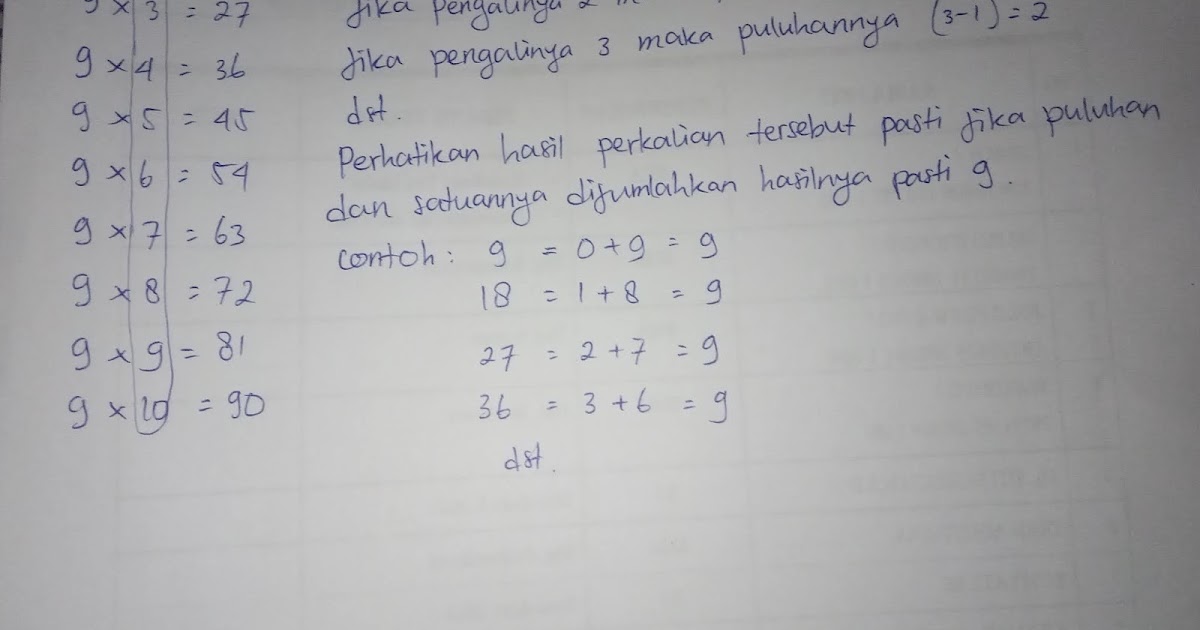 9 x 3 = 27
9 x 4 = 36
9 x 5 = 45
9 x 6 = 54
9 x 7 = 63
9 x 8 = 72
9 x 9 = 81
9 x 10 = 90
Jika pengalinya 2
Jika pengalinya 3 maka puluhannya (3-1) = 2
dst.
Perhatikan hasil perkalian tersebut pasti jika puluhan
dan satuannya dijumlahkan hasilnya pasti 9.
contoh : 9 = 0 + 9 = 9
18 = 1 + 8 = 9
27 = 2 + 7 = 9
36 = 3 + 6 = 9
dst.